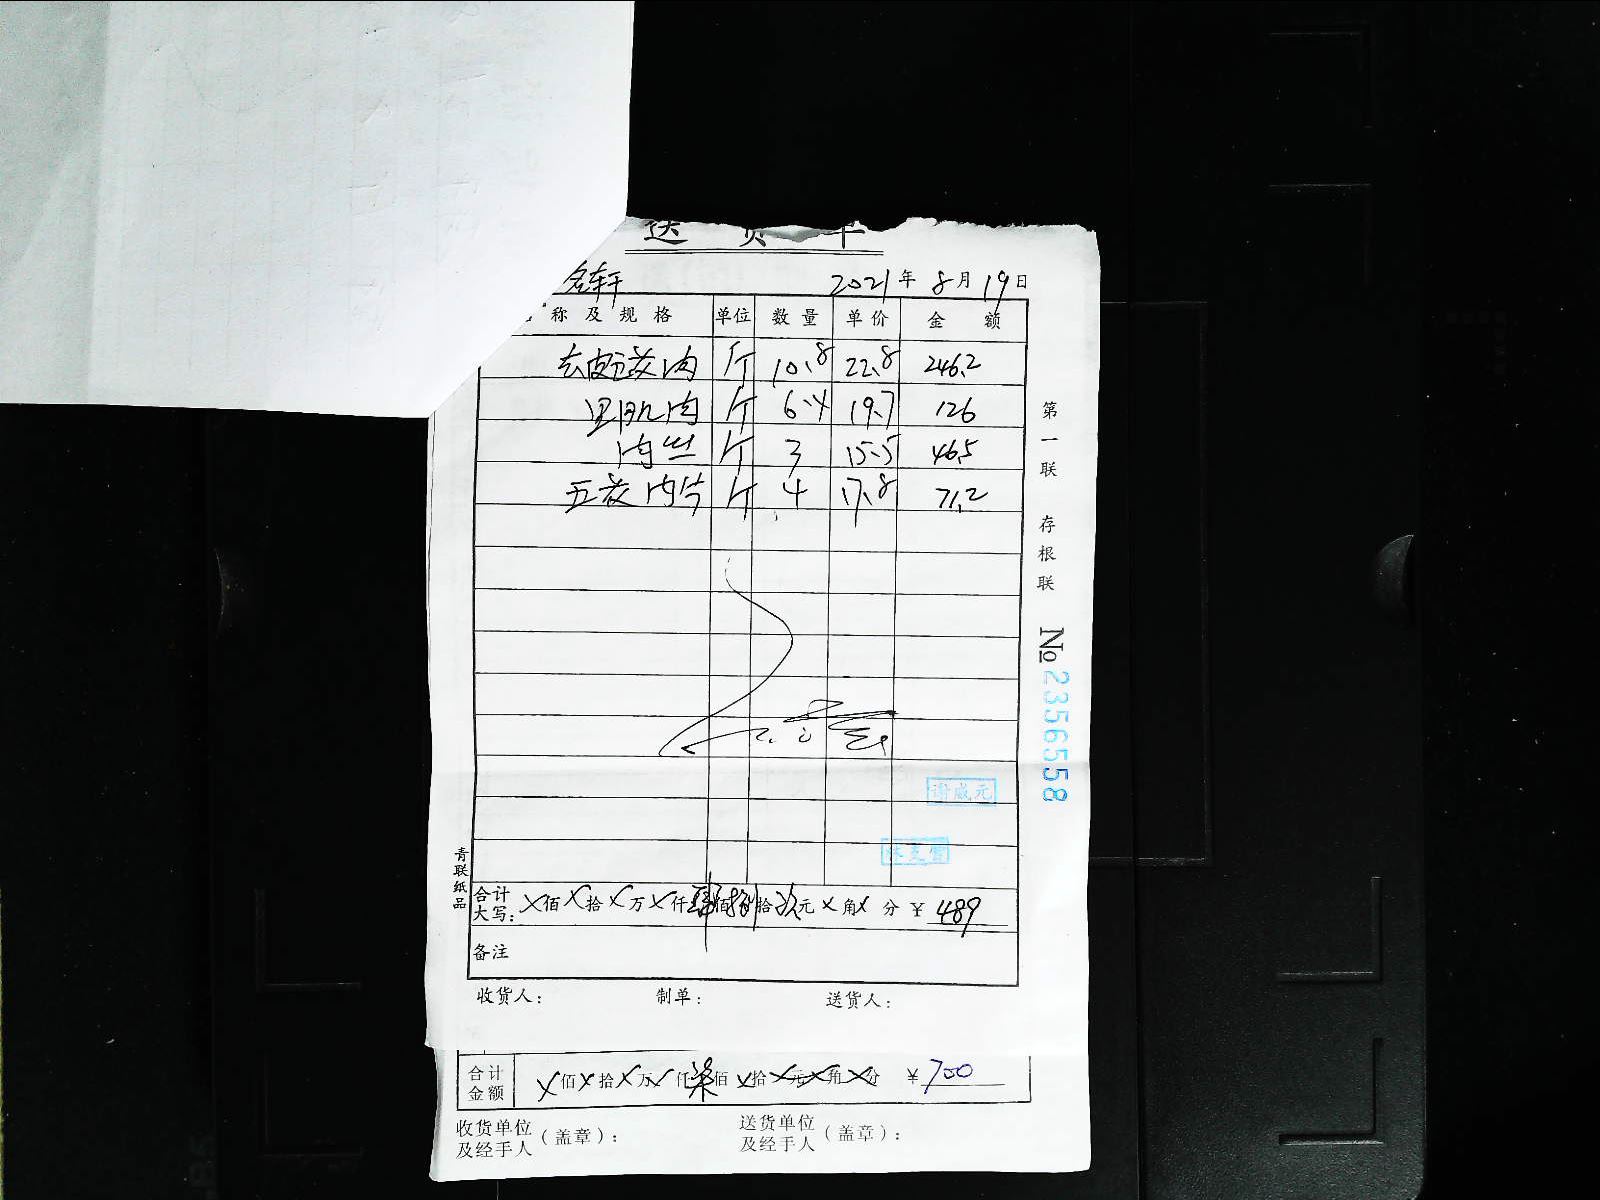 送货单
名轩 2021年8月19日
称及规格 单位 数量 单价 金额
去皮五花肉 斤 10.8 22.8 246.2
里肌肉 斤 6.4 19.7 126
肉丝 斤 3 15.5 46.5
五花肉片 斤 4 17.8 71.2
第一联 存根联
No 2356558
谢成元
青联纸品
合计大写: X佰X拾X万X仟肆佰捌拾玖元X角X分 ¥489
备注
收货人: 制单: 送货人:
合计金额 X佰X拾X万X仟柒佰X拾X元X角X分 ¥700
收货单位及经手人(盖章): 送货单位及经手人(盖章):